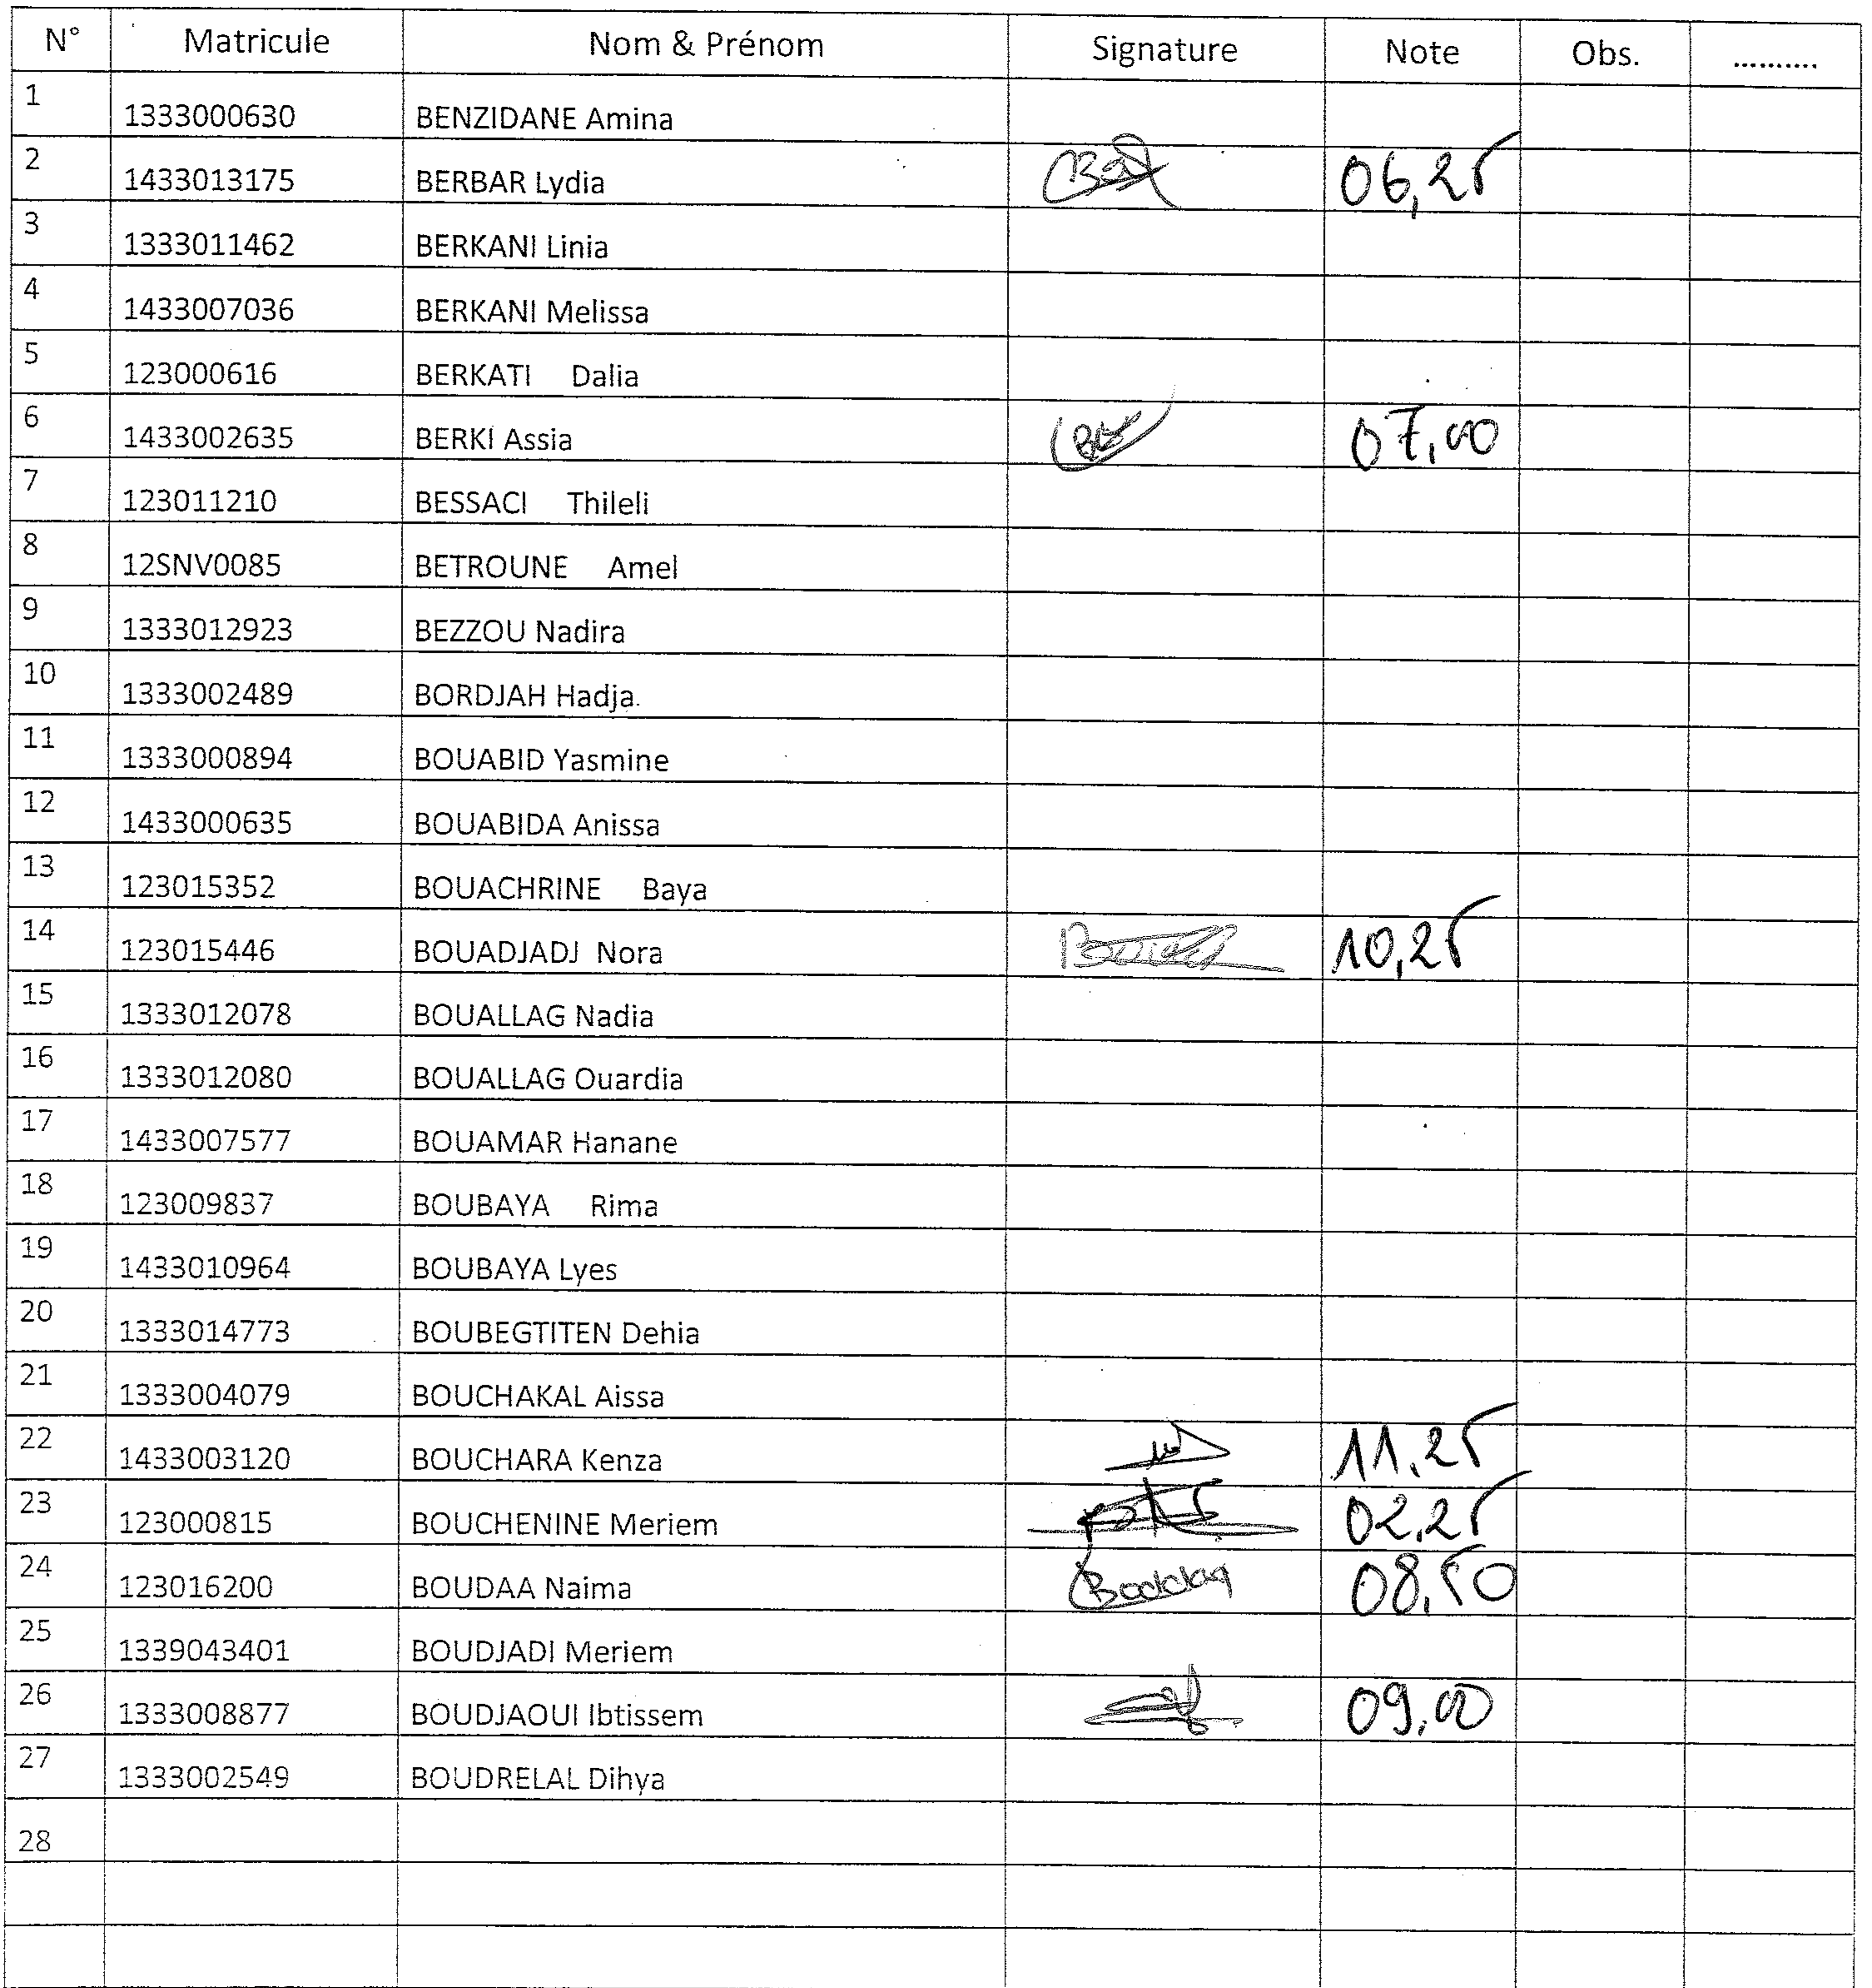 N° Matricule Nom & Prénom Signature Note Obs. ..........
1 1333000630 BENZIDANE Amina
2 1433013175 BERBAR Lydia 06,25
3 1333011462 BERKANI Linia
4 1433007036 BERKANI Melissa
5 123000616 BERKATI Dalia
6 1433002635 BERKI Assia 07,00
7 123011210 BESSACI Thileli
8 12SNV0085 BETROUNE Amel
9 1333012923 BEZZOU Nadira
10 1333002489 BORDJAH Hadja
11 1333000894 BOUABID Yasmine
12 1433000635 BOUABIDA Anissa
13 123015352 BOUACHRINE Baya
14 123015446 BOUADJADJ Nora 10,25
15 1333012078 BOUALLAG Nadia
16 1333012080 BOUALLAG Ouardia
17 1433007577 BOUAMAR Hanane
18 123009837 BOUBAYA Rima
19 1433010964 BOUBAYA Lyes
20 1333014773 BOUBEGTITEN Dehia
21 1333004079 BOUCHAKAL Aissa
22 1433003120 BOUCHARA Kenza 11,25
23 123000815 BOUCHENINE Meriem 02,25
24 123016200 BOUDAA Naima 08,50
25 1339043401 BOUDJADI Meriem
26 1333008877 BOUDJAOUI Ibtissem 09,00
27 1333002549 BOUDRELAL Dihya
28